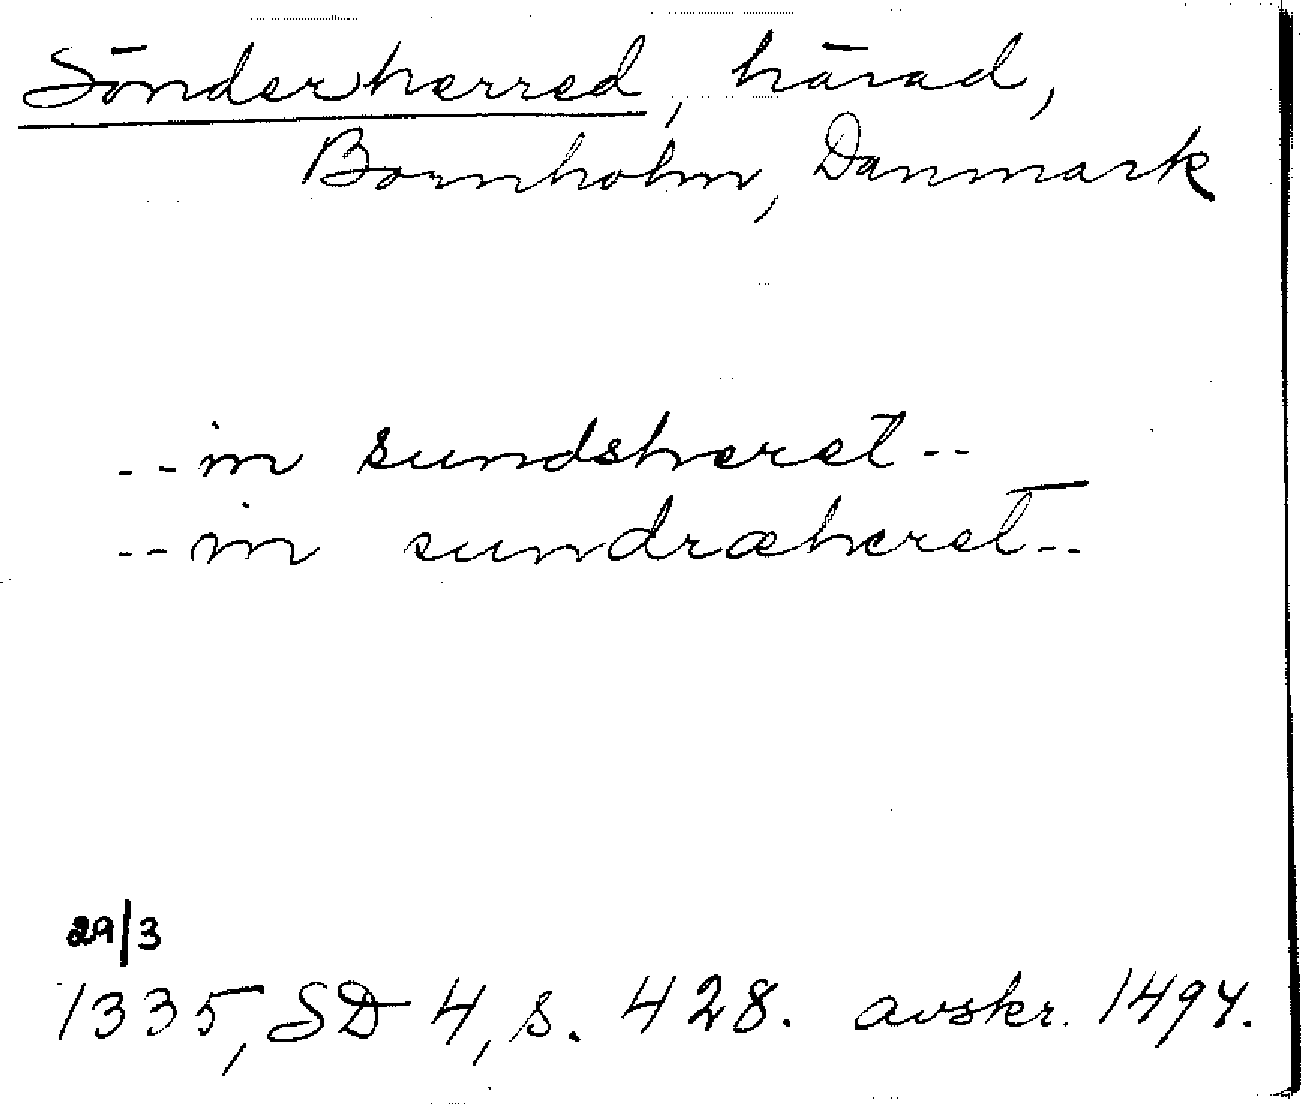 Sönderherred, härad,
Bornholm, Danmark
--in sundsheret--
--in sundræheret--
29/3
1335, SD 4, s. 428. avskr. 1494.